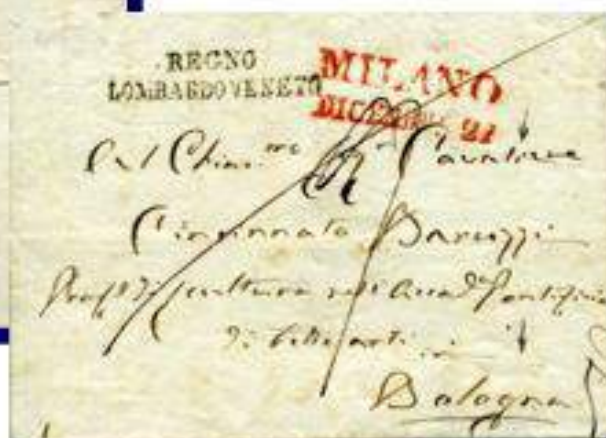 REGNO
LOMBARDOVENETO
MILANO
DICEMBRE 21
Al Chiar.mo Sr. Cavaliere
Cincinnato Baruzzi
Prof.e di scultura nell'Accad.a Pontificia
di belle arti in
Bologna